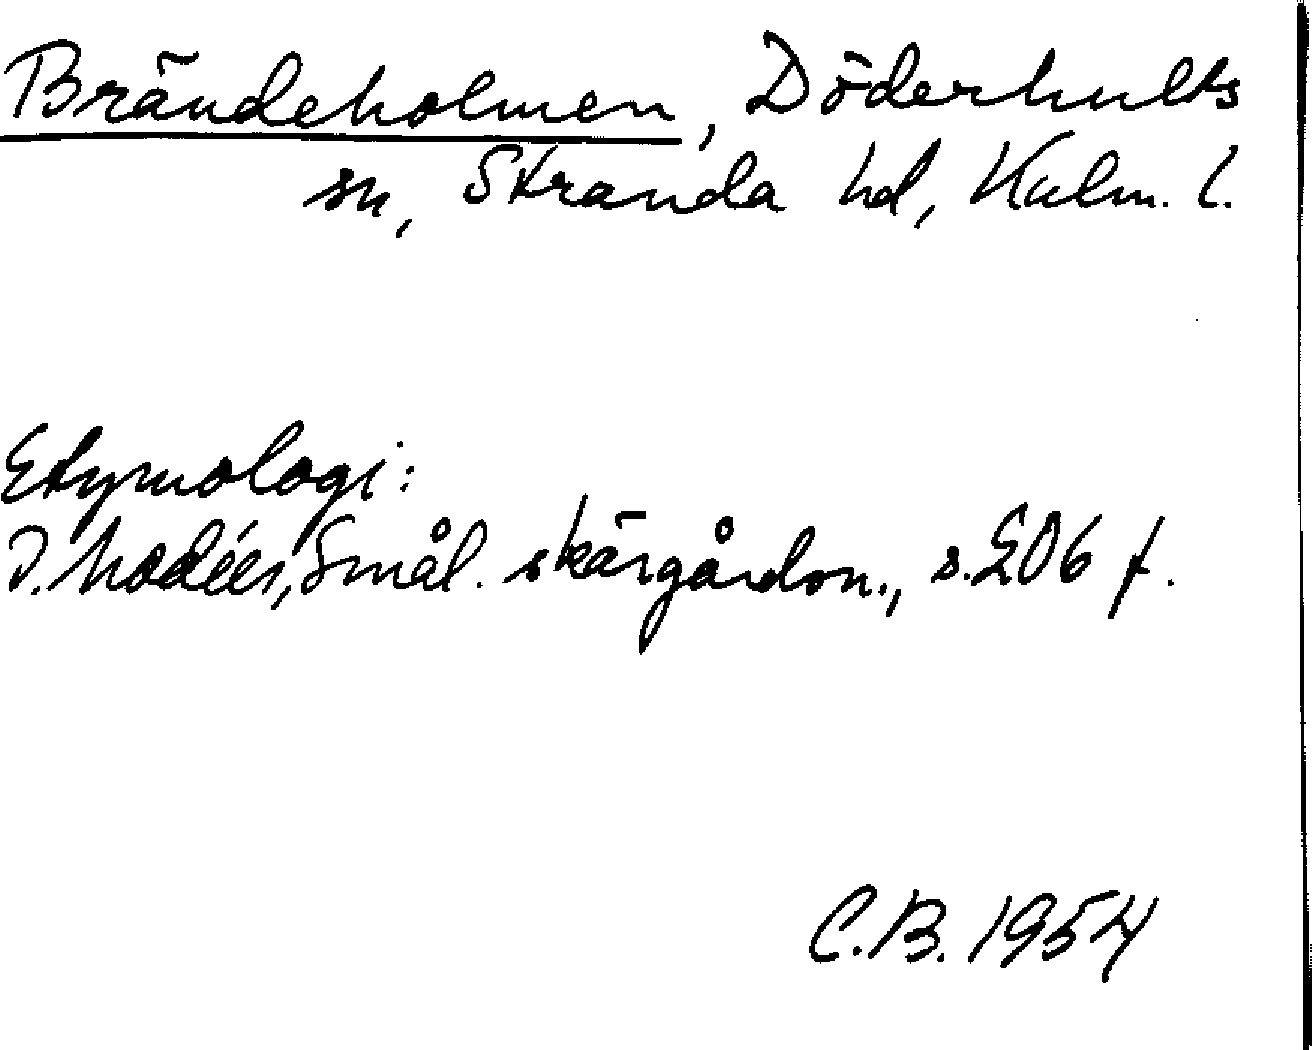 Brändeholmen, Döderhults
sn, Stranda hd, Kalm. l.
Etymologi:
I. Modéer, Smål. skärgårdsn., s. 206 f.
C.B. 1954